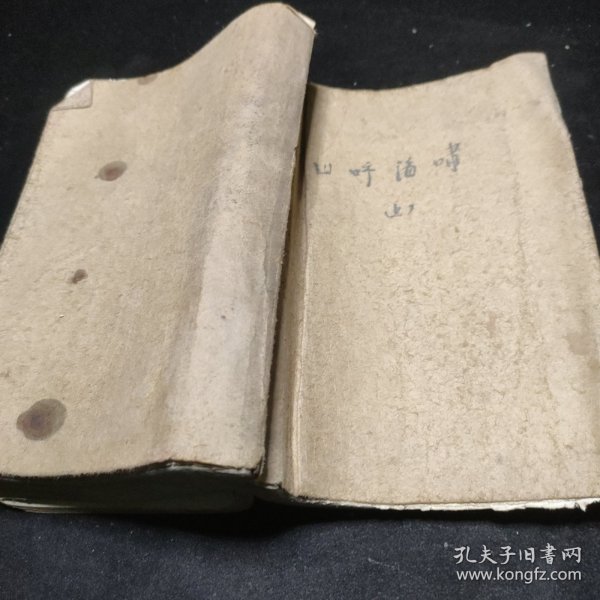 山呼海啸
孔夫子旧書网
www.kongfz.com